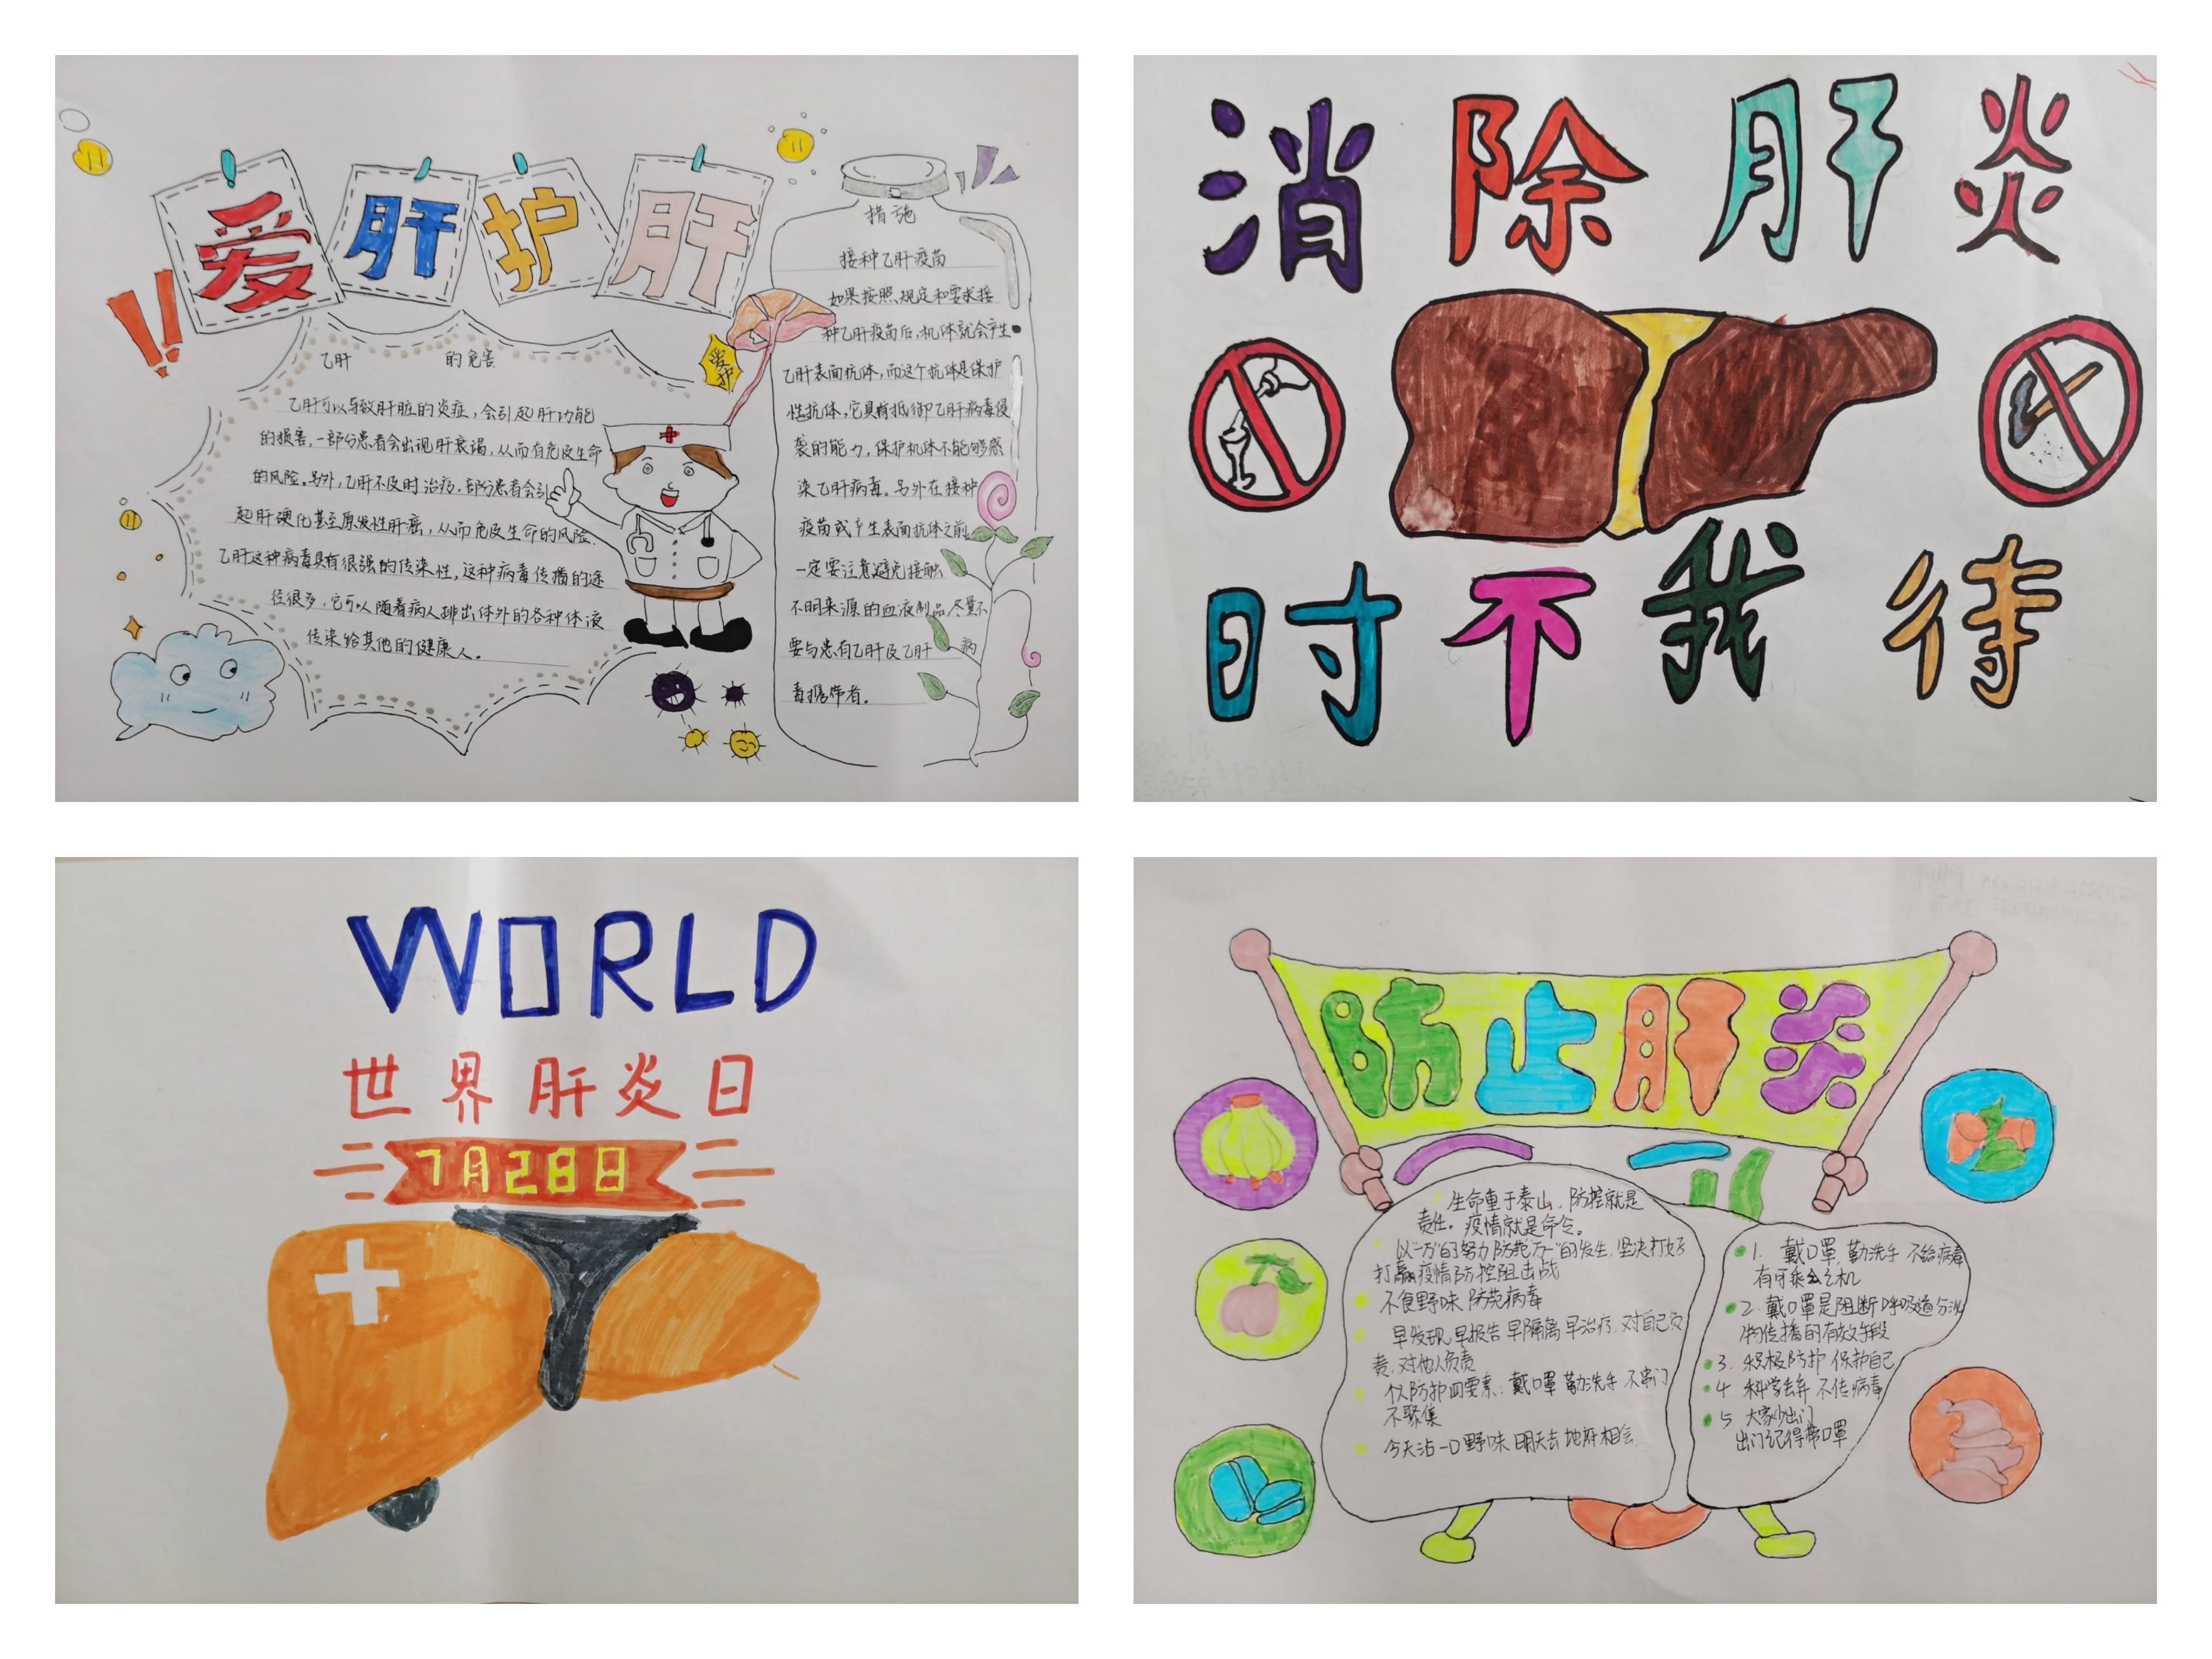 爱肝护肝
乙肝 的危害
乙肝可以导致肝脏的炎症，会引起肝功能
的损害，一部分患者会出现肝衰竭，从而有危及生命
的风险。另外，乙肝不及时治疗，部分患者会引
起肝硬化甚至原发性肝癌，从而危及生命的风险.
乙肝这种病毒具有很强的传染性，这种病毒传播的途
径很多，它可以随着病人排出体外的各种体液
传染给其他的健康人。
爱护
措施
接种乙肝疫苗
如果按照规定和要求接
种乙肝疫苗后，机体就会产生
乙肝表面抗体，而这个抗体是保护
性抗体，它具有抵御乙肝病毒侵
袭的能力，保护机体不能够感
染乙肝病毒。另外在接种
疫苗或产生表面抗体之前
一定要注意避免接触
不明来源的血液制品，尽量不
要与患有乙肝及乙肝病
毒携带者。
消除肝炎
时不我待
WORLD
世界肝炎日
7月28日
防止肝炎
生命重于泰山，防控就是
责任。疫情就是命令。
以"一万"的努力防范"万一"的发生，坚决打好
打赢疫情防控阻击战
不食野味 防范病毒
早发现 早报告 早隔离 早治疗，对自己负
责，对他人负责
仅防护四要素：戴口罩 勤洗手 不串门
不聚集
今天沾一口野味 明天去地府相会
1. 戴口罩，勤洗手 不给病毒
有可乘之机
2. 戴口罩是阻断呼吸道分泌
物传播的有效手段
3. 积极防护 保护自己
4 科学丢弃 不传病毒
5 大家少出门
出门记得带口罩